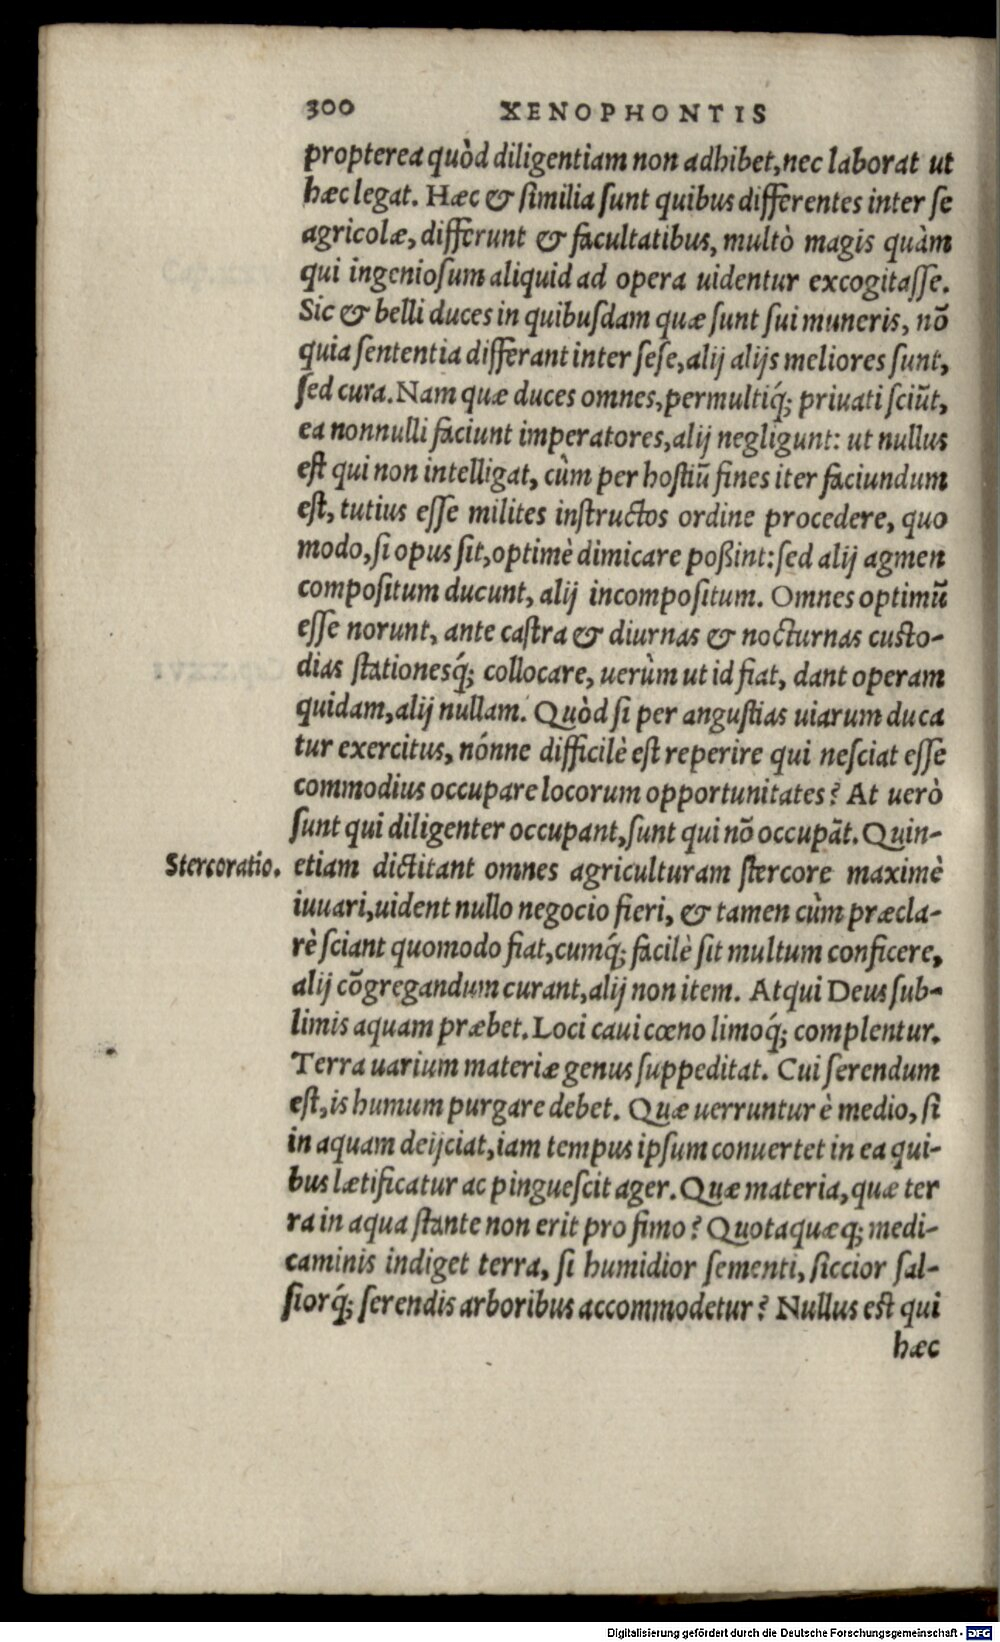 300 XENOPHONTIS
propterea quòd diligentiam non adhibet, nec laborat ut
hæc legat. Hæc & similia sunt quibus differentes inter se
agricolæ, differunt & facultatibus, multò magis quàm
qui ingeniosum aliquid ad opera uidentur excogitasse.
Sic & belli duces in quibusdam quæ sunt sui muneris, nō
quia sententia differant inter sese, alij alijs meliores sunt,
sed cura. Nam quæ duces omnes, permultiq́; priuati sciūt,
ea nonnulli faciunt imperatores, alij negligunt: ut nullus
est qui non intelligat, cùm per hostiū fines iter faciundum
est, tutius esse milites instructos ordine procedere, quo
modo, si opus sit, optimè dimicare poßint: sed alij agmen
compositum ducunt, alij incompositum. Omnes optimū
esse norunt, ante castra & diurnas & nocturnas custo-
dias stationesq́; collocare, uerùm ut id fiat, dant operam
quidam, alij nullam. Quòd si per angustias uiarum duca
tur exercitus, nónne difficilè est reperire qui nesciat esse
commodius occupare locorum opportunitates? At uerò
sunt qui diligenter occupant, sunt qui nō occupāt. Quin-
Stercoratio. etiam dictitant omnes agriculturam stercore maximè
iuuari, uident nullo negocio fieri, & tamen cùm præcla-
rè sciant quomodo fiat, cumq́; facilè sit multum conficere,
alij cōgregandum curant, alij non item. Atqui Deus sub-
limis aquam præbet. Loci caui cœno limoq́; complentur.
Terra uarium materiæ genus suppeditat. Cui serendum
est, is humum purgare debet. Quæ uerruntur è medio, si
in aquam deijciat, iam tempus ipsum conuertet in ea qui-
bus lætificatur ac pinguescit ager. Quæ materia, quæ ter
ra in aqua stante non erit pro fimo? Quotaquæq; medi-
caminis indiget terra, si humidior sementi, siccior sal-
siorq́; serendis arboribus accommodetur? Nullus est qui
hæc
Digitalisierung gefördert durch die Deutsche Forschungsgemeinschaft - DFG